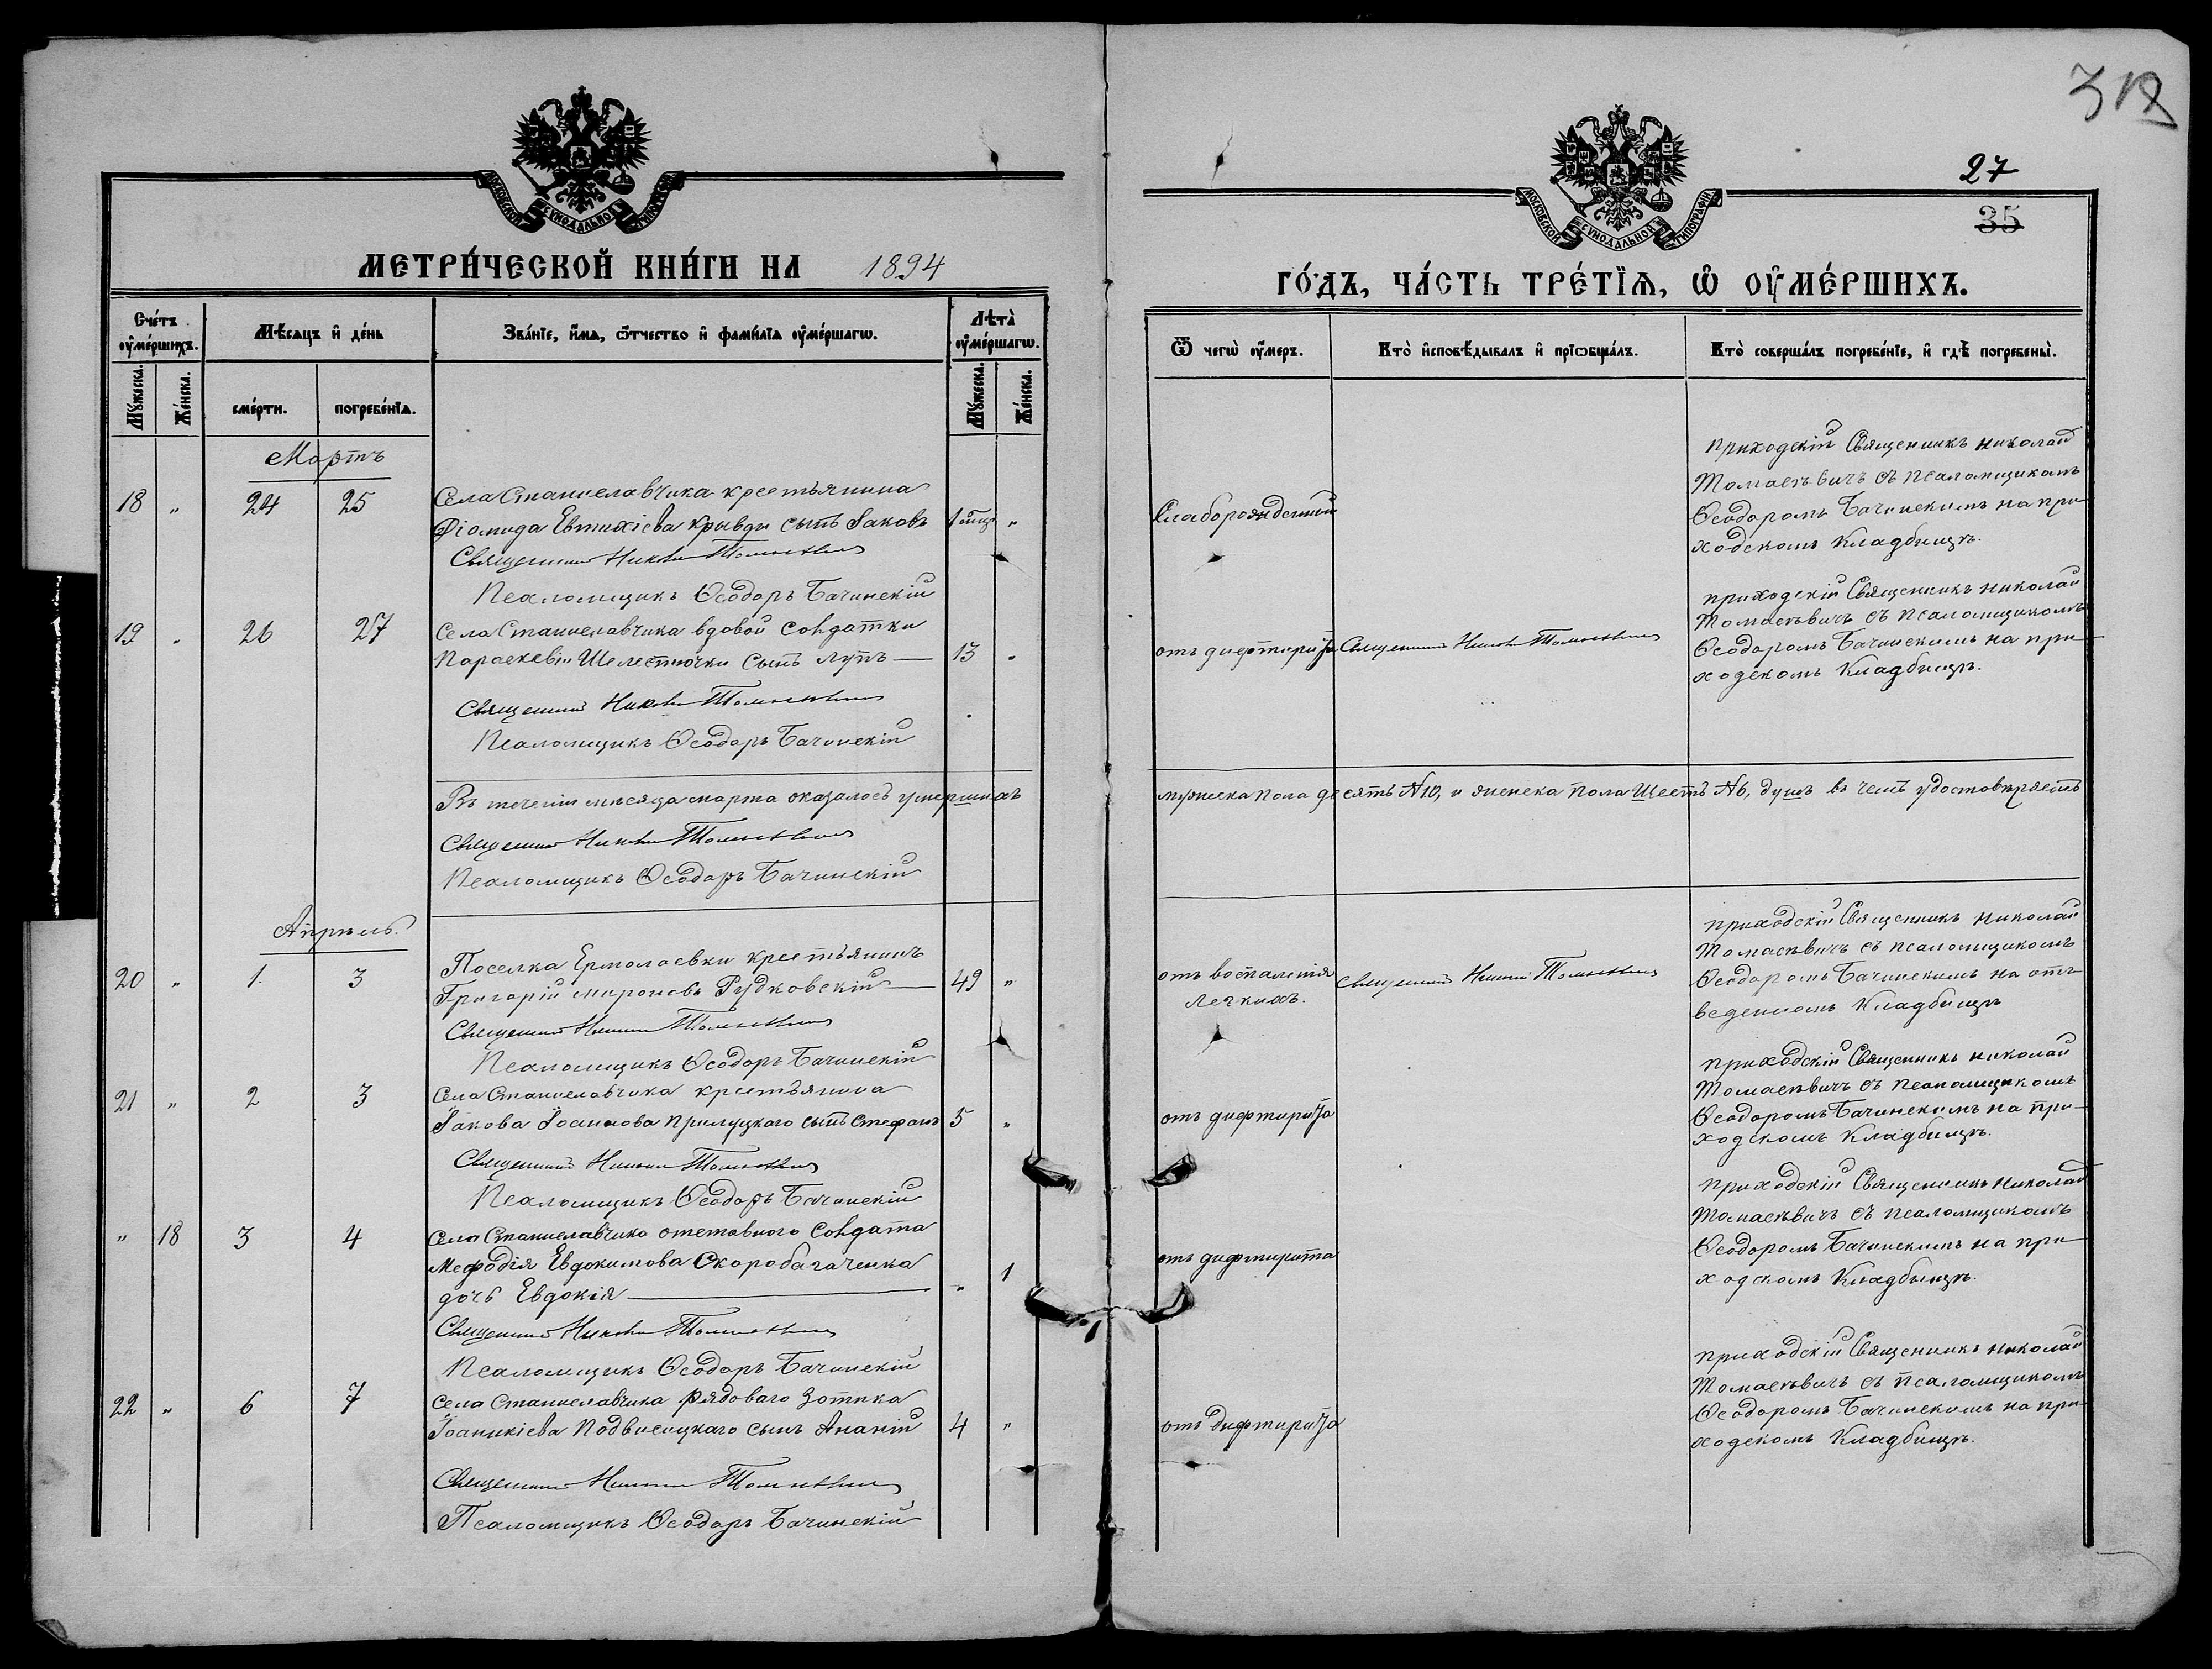 312
27
35
МОСКОВСКОЙ СѴНОДАЛЬНОЙ ТИПОГРАФІИ
МОСКОВСКОЙ СѴНОДАЛЬНОЙ ТИПОГРАФІИ
МЕТРИ́ЧЕСКОЙ КНИ́ГИ НА 1894
ГО́ДЪ, ЧА́СТЬ ТРЕ́ТЇѦ, Ѡ҆ ОУ҆МЕ́РШИХЪ.
Сче́тъ оу҆ме́ршихъ.
Мѣ́сяцъ и҆ де́нь
Зва́нїе, и҆́мѧ, ѻ҆́тчество и҆ фами́лїѧ оу҆ме́ршагѡ.
Лѣта̀ оу҆ме́ршагѡ.
Ѿ чегѡ̀ оу҆́меръ.
Кто̀ и҆сповѣ́дывалъ и҆ прїѡбща́лъ.
Кто̀ соверша́лъ погребе́нїе, и҆ гдѣ̀ погребены̀.
Мꙋ́жеска.
Же́нска.
сме́рти.
погребе́нїѧ.
Мꙋ́жеска.
Же́нска.
Мартъ
18 „ 24 25 Села Станиславчика крестьянина
Діомида Евтихіева Крывды сынъ Іаковъ 1 „
Священникъ Николай Томасевичъ
Псаломщикъ Ѳеодоръ Бачинскій
Слаборожденный
приходскій Священникъ Николай
Томасевичъ съ псаломщикомъ
Ѳеодоромъ Бачинскимъ на при-
ходскомъ Кладбищѣ.
19 „ 26 27 Села Станиславчика вдовой Солдатки
Параскевіи Шелестючки сынъ Лупъ — 13 „
Священникъ Николай Томасевичъ
Псаломщикъ Ѳеодоръ Бачинскій
отъ дифтерита
Священникъ Николай Томасевичъ
приходскій Священникъ Николай
Томасевичъ съ псаломщикомъ
Ѳеодоромъ Бачинскимъ на при-
ходскомъ Кладбищѣ.
Въ теченіи мѣсяца марта оказалось умершихъ мужеска пола десять №10, и женска пола Шесть №6, душъ въ чемъ удостовѣряетъ
Священникъ Николай Томасевичъ
Псаломщикъ Ѳеодоръ Бачинскій
Апрѣль.
20 „ 1. 3 Поселка Ермолаевки крестьянинъ
Григорій Мироновъ Рудковскій — 49 „
Священникъ Николай Томасевичъ
Псаломщикъ Ѳеодоръ Бачинскій
отъ воспаленія
легкихъ.
Священникъ Николай Томасевичъ
приходскій Священникъ Николай
Томасевичъ съ псаломщикомъ
Ѳеодоромъ Бачинскимъ на отъ-
веденномъ Кладбищѣ
21 „ 2 3 Села Станиславчика крестьянина
Іакова Іоаннова Прилуцкаго сынъ Стефанъ 5 „
Священникъ Николай Томасевичъ
Псаломщикъ Ѳеодоръ Бачинскій
отъ дифтерита
приходскій Священникъ Николай
Томасевичъ съ псаломщикомъ
Ѳеодоромъ Бачинскимъ на при-
ходскомъ Кладбищѣ.
„ 18 3 4 Села Станиславчика отставного Солдата
Меѳодія Евдокимова Скоробагаченка
дочь Евдокія — „ 1
Священникъ Николай Томасевичъ
Псаломщикъ Ѳеодоръ Бачинскій
отъ дифтерита
приходскій Священникъ Николай
Томасевичъ съ псаломщикомъ
Ѳеодоромъ Бачинскимъ на при-
ходскомъ Кладбищѣ.
22 „ 6 7 Села Станиславчика рядоваго Зотика
Іоанникіева Подвисоцкаго сынъ Ананій 4 „
Священникъ Николай Томасевичъ
Псаломщикъ Ѳеодоръ Бачинскій
отъ дифтерита
приходскій Священникъ Николай
Томасевичъ съ псаломщикомъ
Ѳеодоромъ Бачинскимъ на при-
ходскомъ Кладбищѣ.